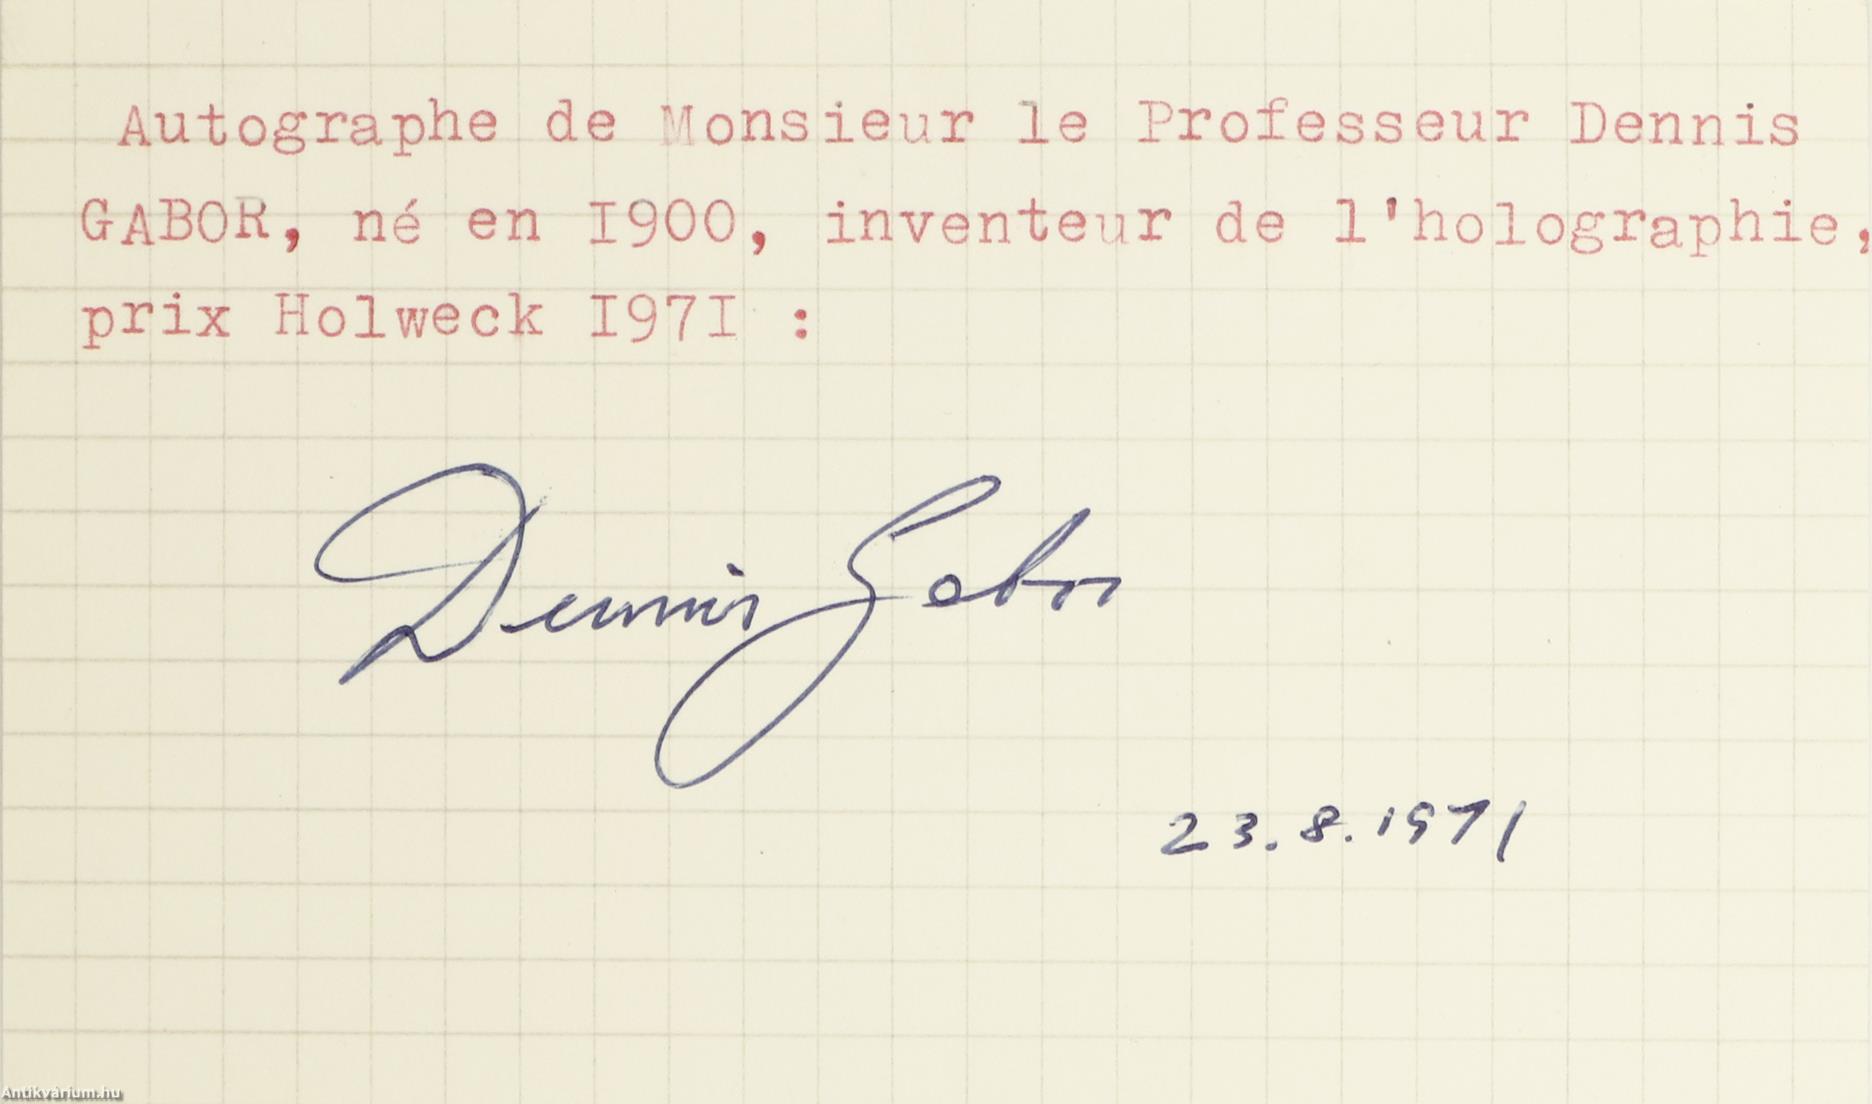 Autographe de Monsieur le Professeur Dennis
GABOR, né en I900, inventeur de l'holographie,
prix Holweck I97I :
Dennis Gabor
23.8.1971
Antikvárium.hu